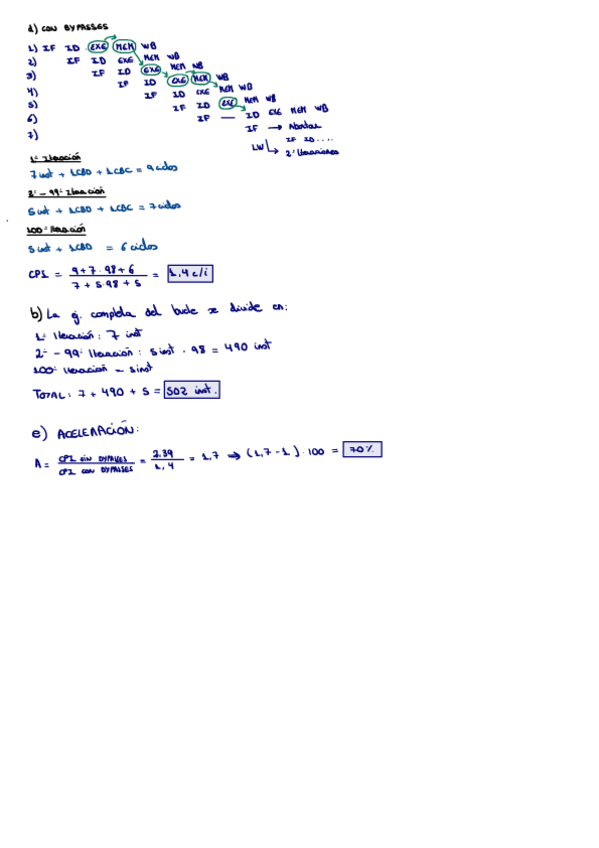 d) CON BYPASSES
1) IF ID EXE MEM WB
2) IF ID EXE MEM WB
3) IF ID EXE MEM WB
4) IF ID EXE MEM WB
5) IF ID EXE MEM WB
6) IF ID EXE MEM WB
7) IF — ID EXE MEM WB
IF → Abortar
IF ID....
LW → 2ª Iteraciones
1ª Iteración
7 inst + 1CBD + 1CBC = 9 ciclos
2ª - 99ª Iteración
5 inst + 1CBD + 1CBC = 7 ciclos
100ª Iteración
5 inst + 1CBD = 6 ciclos
CPI = (9+7·98+6) / (7+5·98+5) = 1,4 c/i
b) La ej. completa del bucle se divide en:
1ª Iteración: 7 inst
2ª - 99ª Iteración: 5 inst · 98 = 490 inst
100ª Iteración - 5 inst
TOTAL: 7 + 490 + 5 = 502 inst.
e) ACELERACIÓN:
A = CPI sin BYPASSES / CPI con BYPASSES = 2.39 / 1,4 = 1,7 → (1,7 - 1) · 100 = 70%